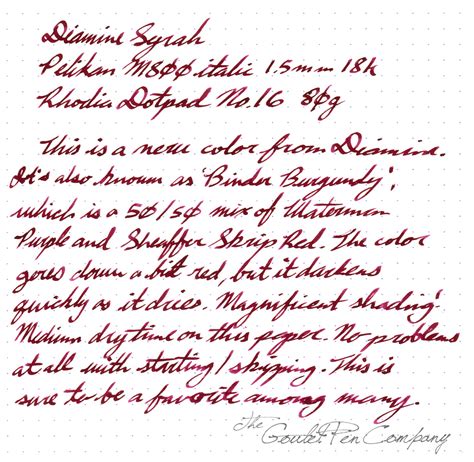 Diamine Syrah
Pelikan M800 italic 1.5mm 18k
Rhodia Dotpad No.16 80g
This is a new color from Diamine.
It's also known as 'Binder Burgundy',
which is a 50/50 mix of Waterman
Purple and Sheaffer Skrip Red. The color
goes down a bit red, but it darkens
quickly as it dries. Magnificent shading!
Medium dry time on this paper. No problems
at all with starting/skipping. This is
sure to be a favorite among many.
The Goulet Pen Company